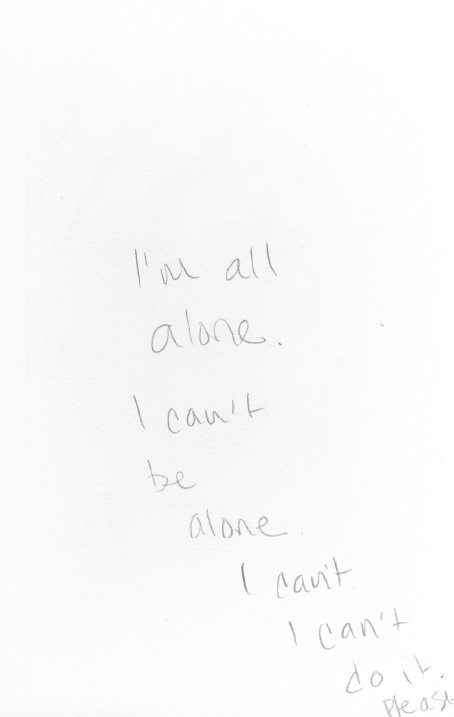 I'm all
alone.
I can't
be
alone.
I can't
I can't
do it.
Please